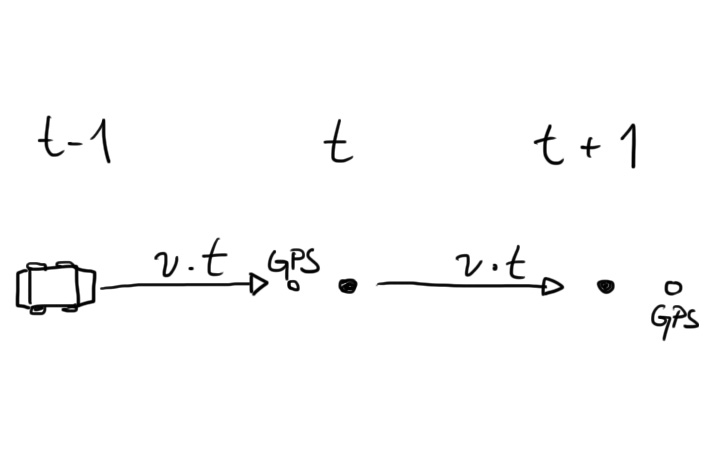 t-1 t t+1
v.t GPS v.t
GPS